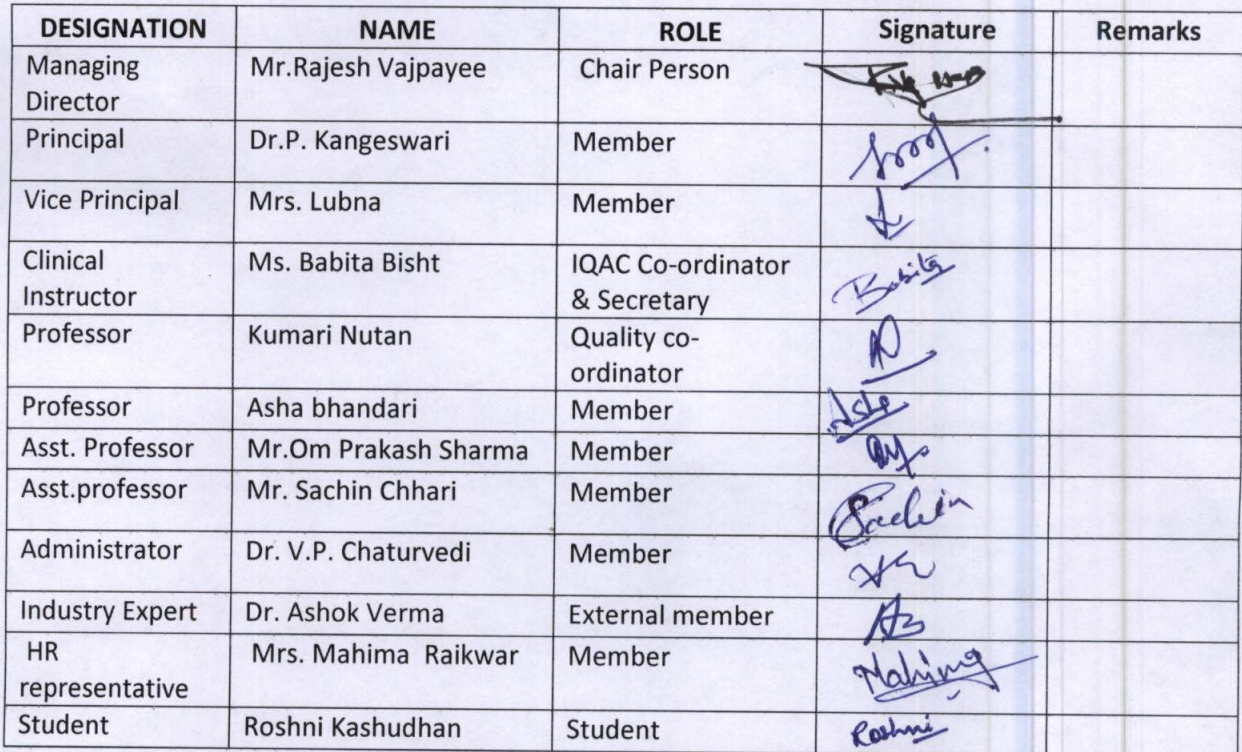 DESIGNATION NAME ROLE Signature Remarks
Managing Director Mr.Rajesh Vajpayee Chair Person
Principal Dr.P. Kangeswari Member
Vice Principal Mrs. Lubna Member
Clinical Instructor Ms. Babita Bisht IQAC Co-ordinator & Secretary Babita
Professor Kumari Nutan Quality co-ordinator
Professor Asha bhandari Member Asha
Asst. Professor Mr.Om Prakash Sharma Member
Asst.professor Mr. Sachin Chhari Member Sachin
Administrator Dr. V.P. Chaturvedi Member
Industry Expert Dr. Ashok Verma External member
HR representative Mrs. Mahima Raikwar Member Mahima
Student Roshni Kashudhan Student Roshni